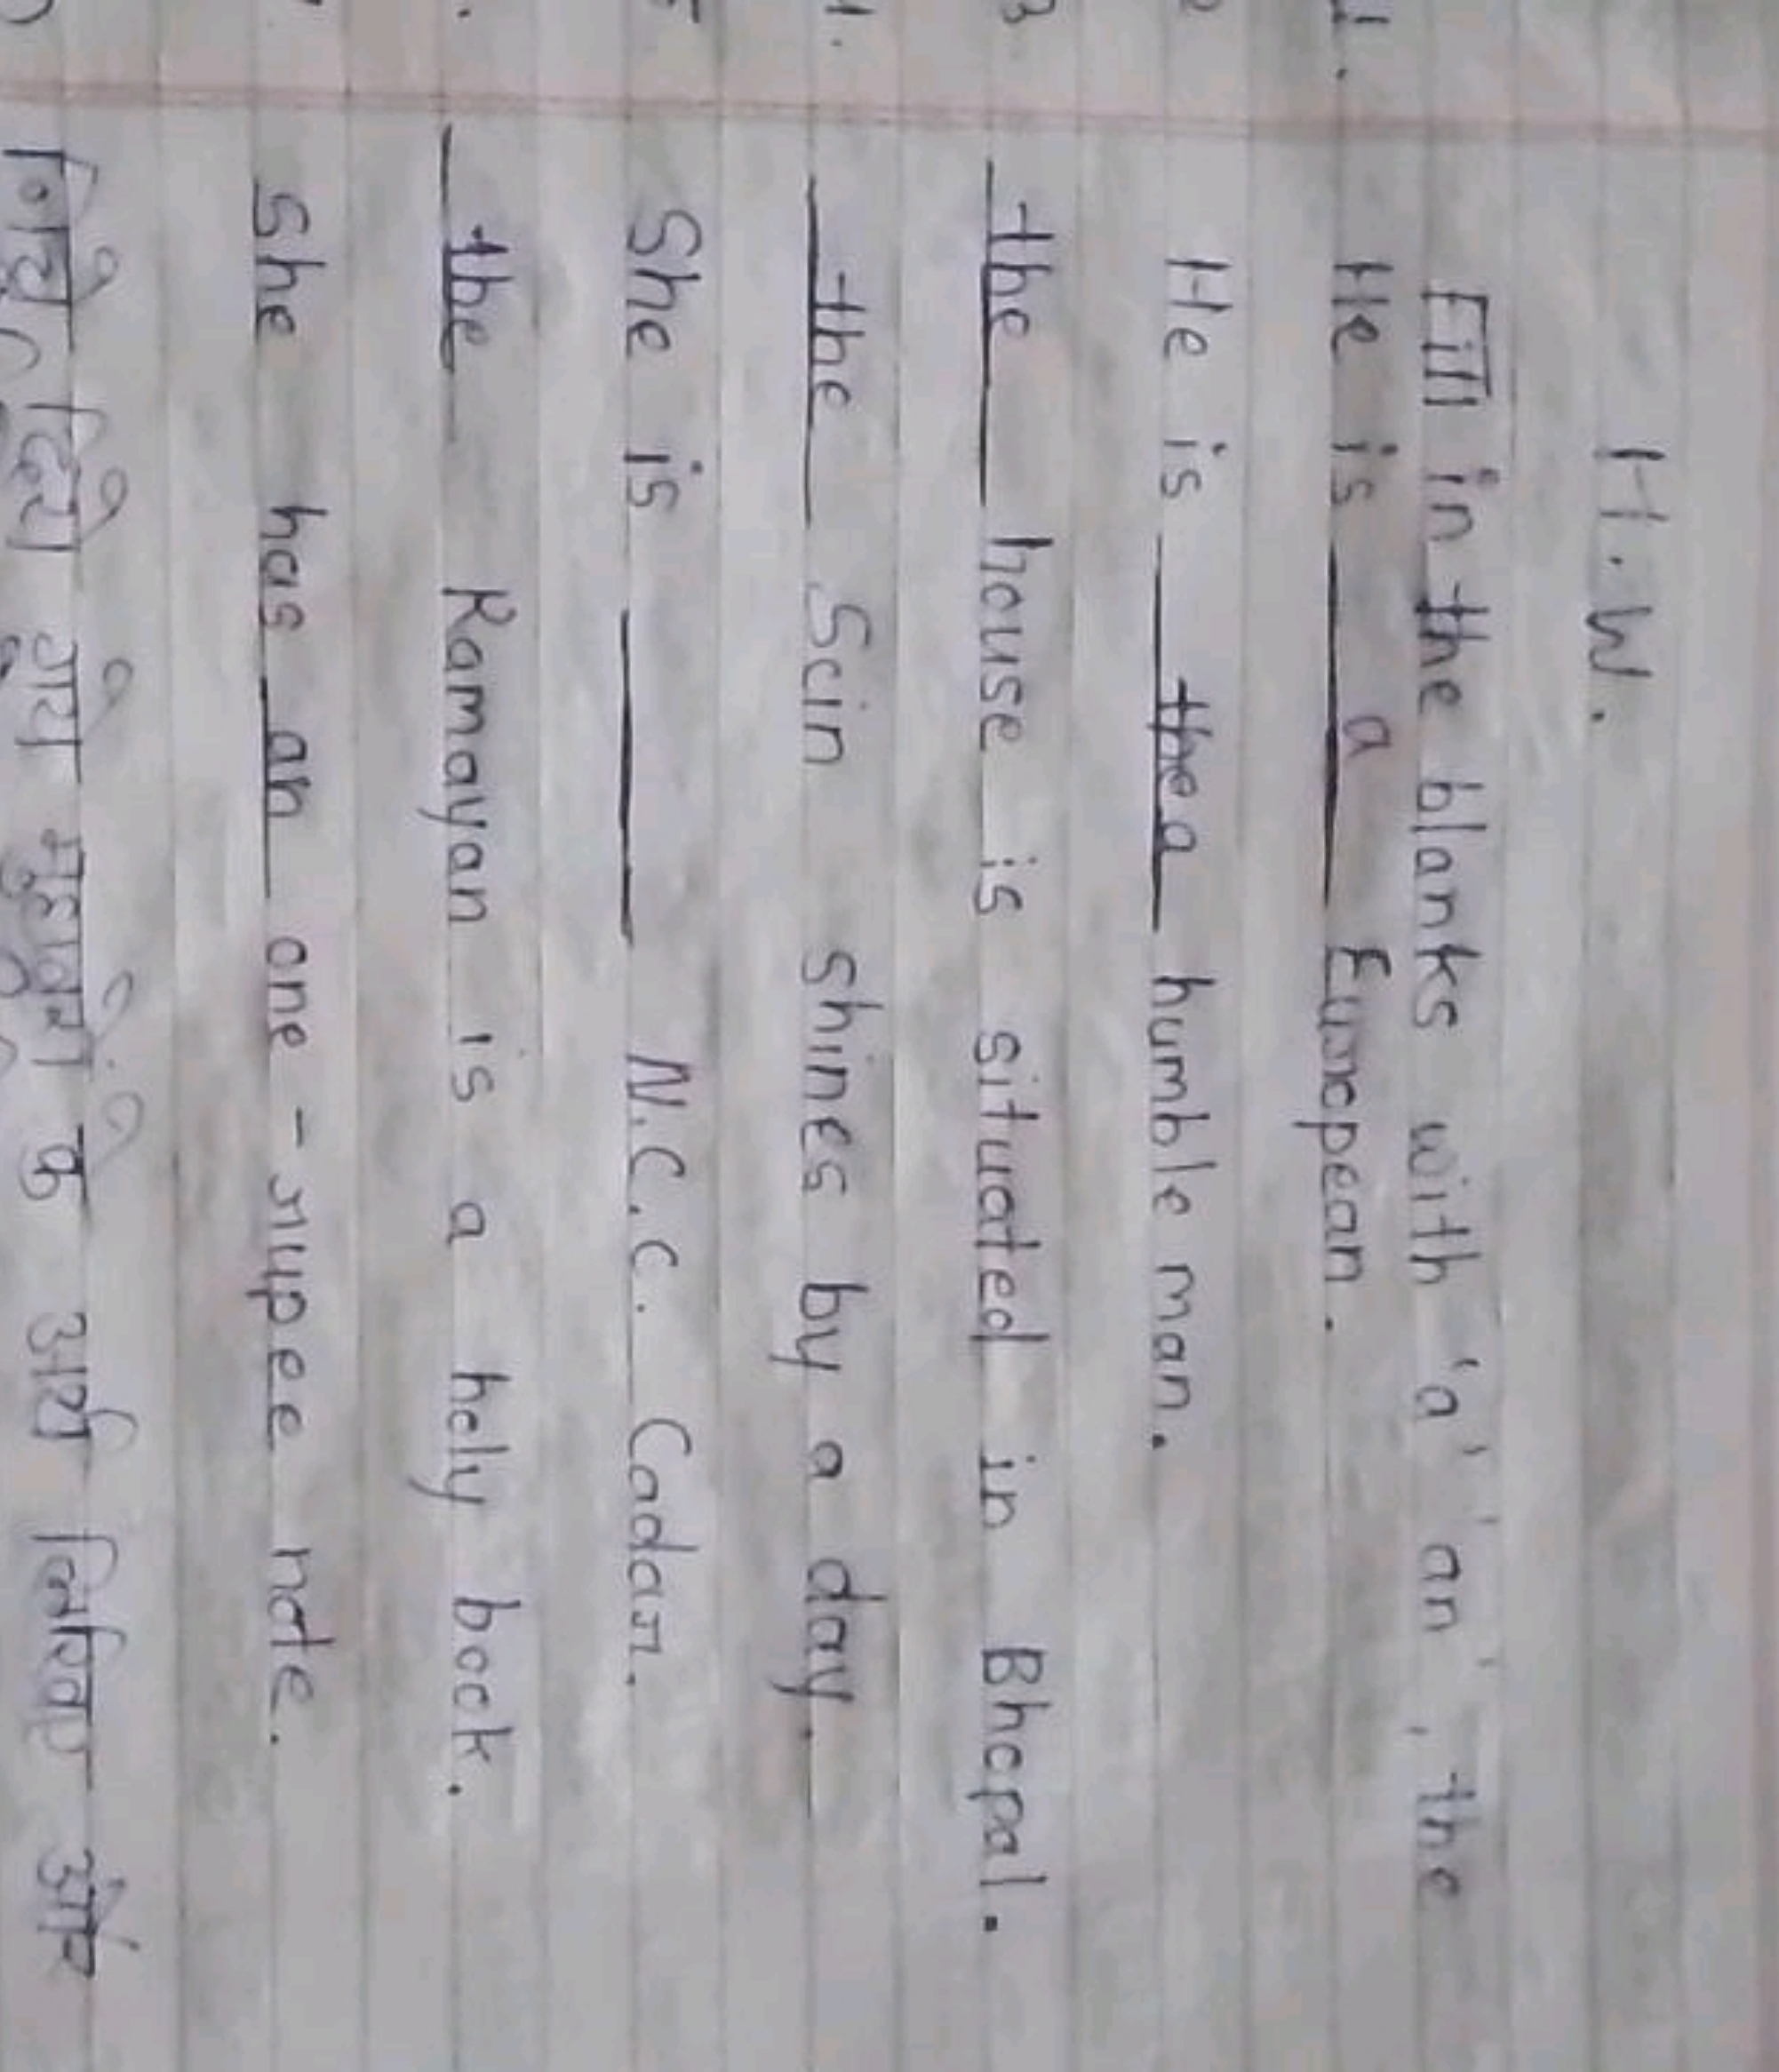 H.W.
Fill in the blanks with 'a' 'an', the
1. He is a European.
2 He is the a humble man.
3 the house is situated in Bhopal.
4. the Sun shines by a day.
5 She is ____ N.C.C. Cadar.
the Ramayan is a holy book.
She has an one-rupee note.
दिये गये मुहावरों के अर्थ लिखिए और